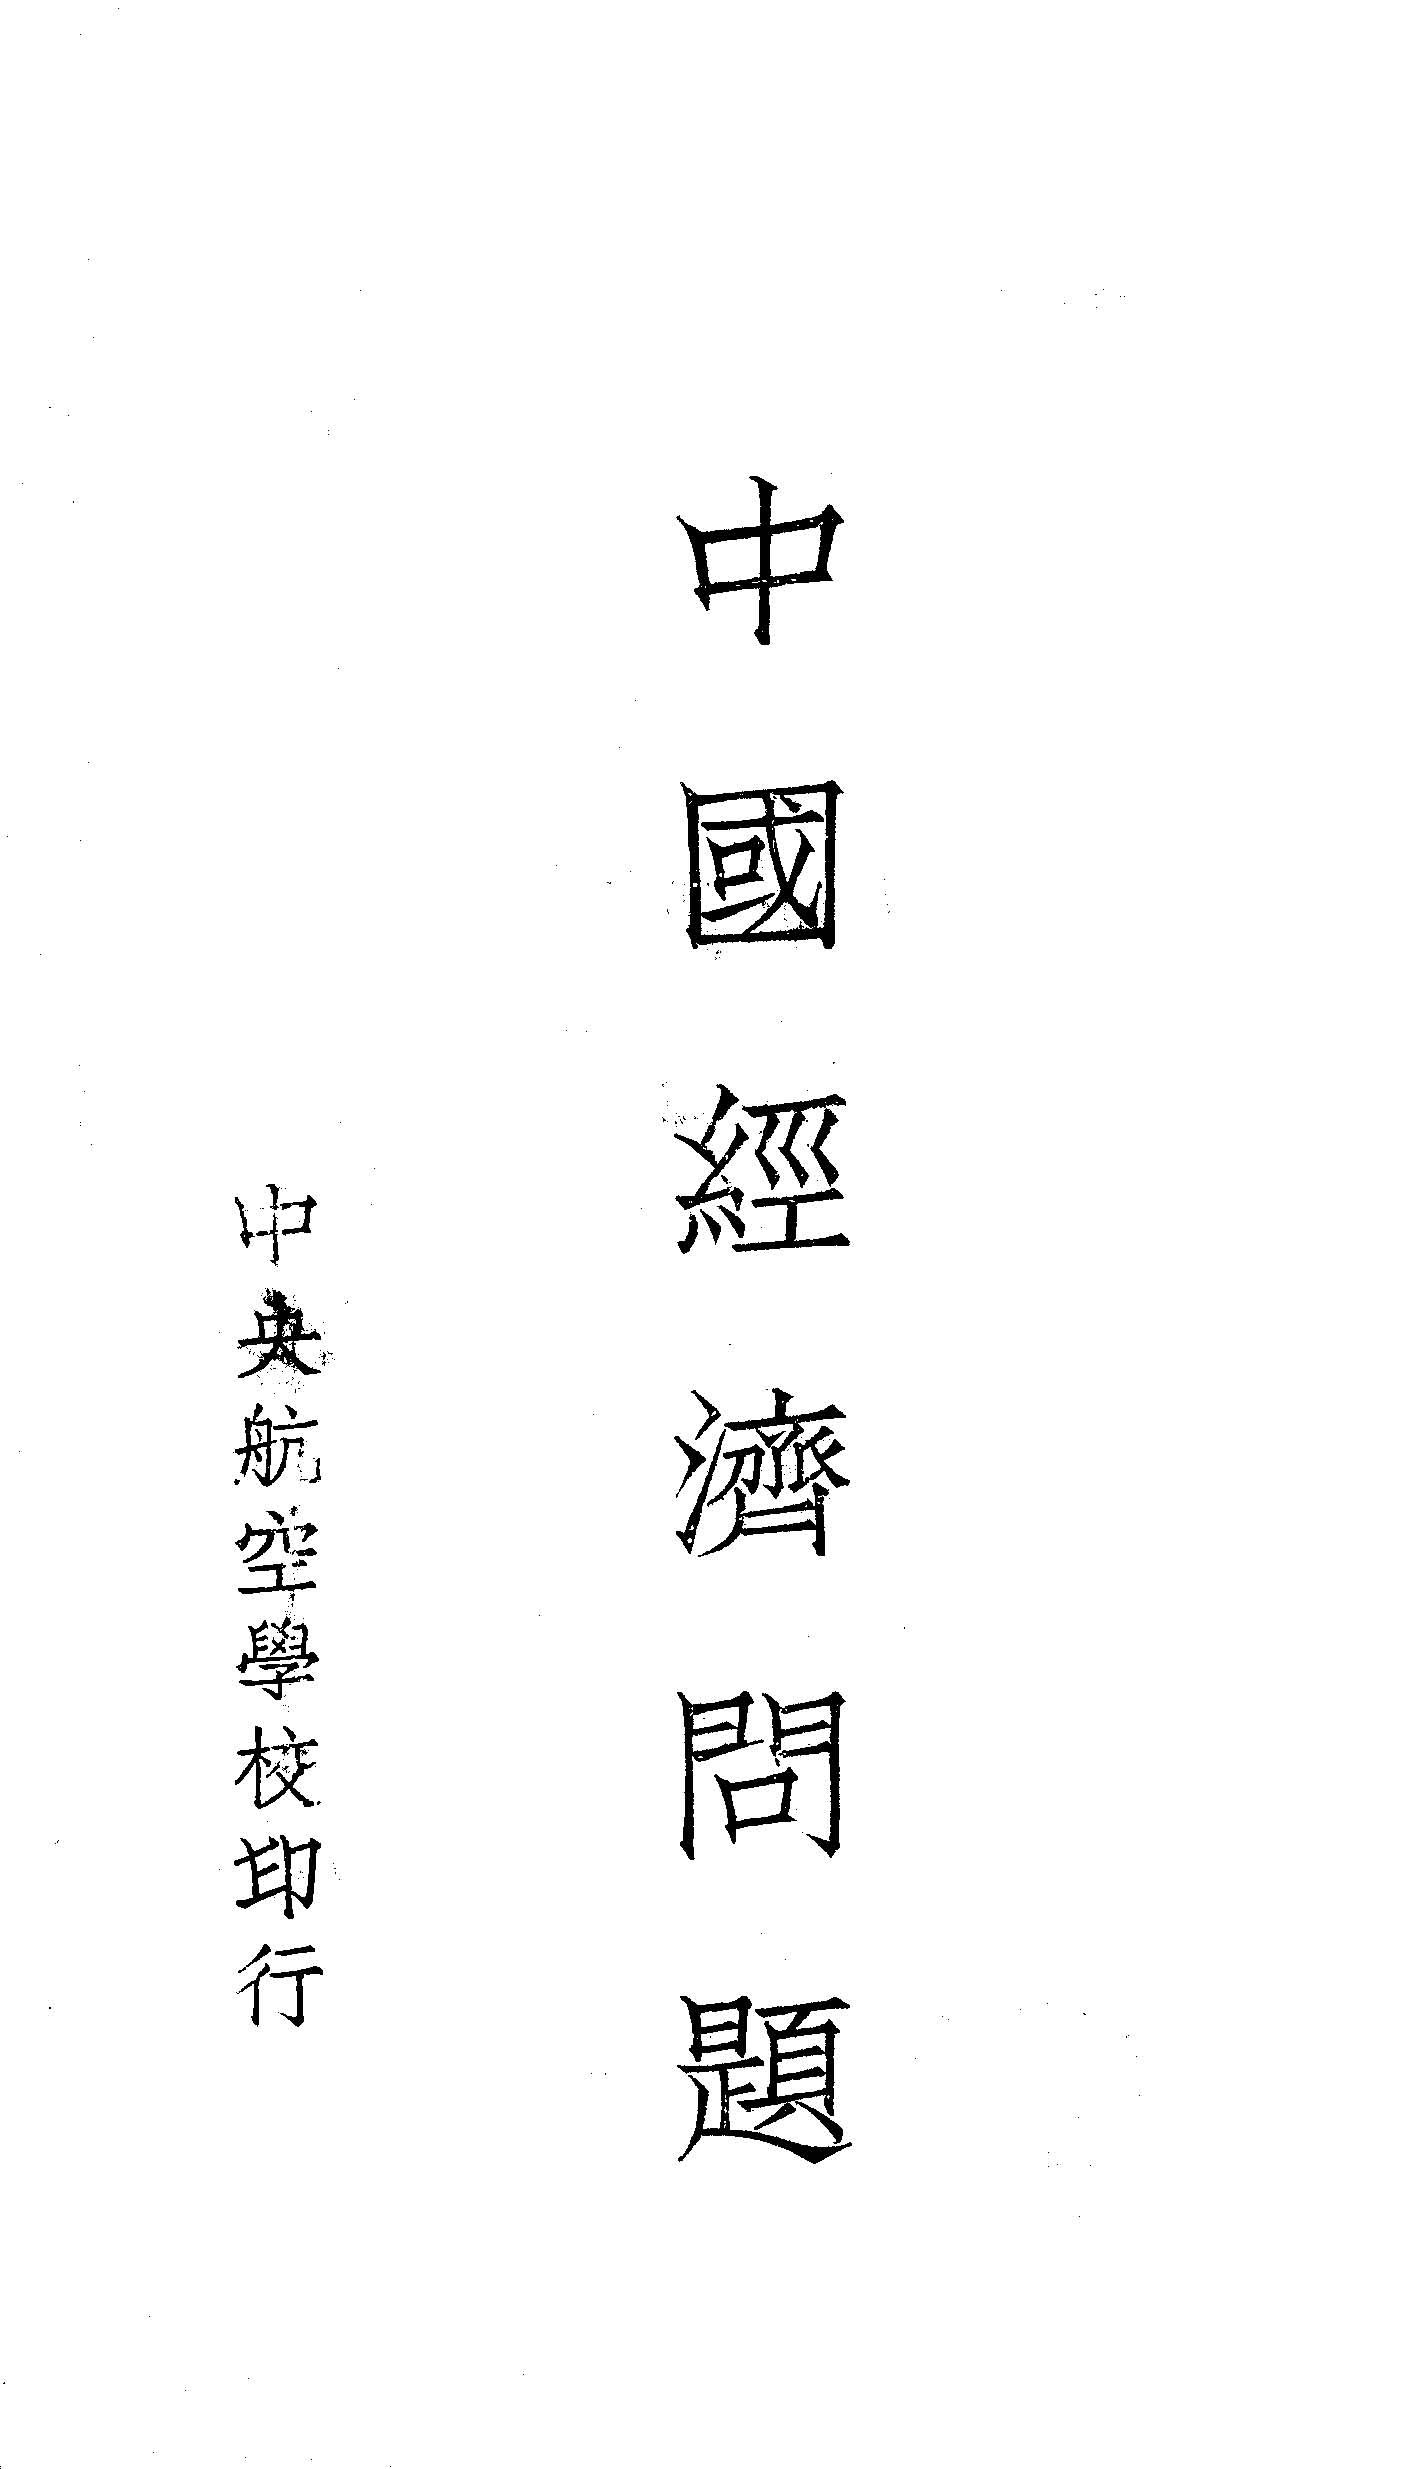 中國經濟問題
中央航空學校印行